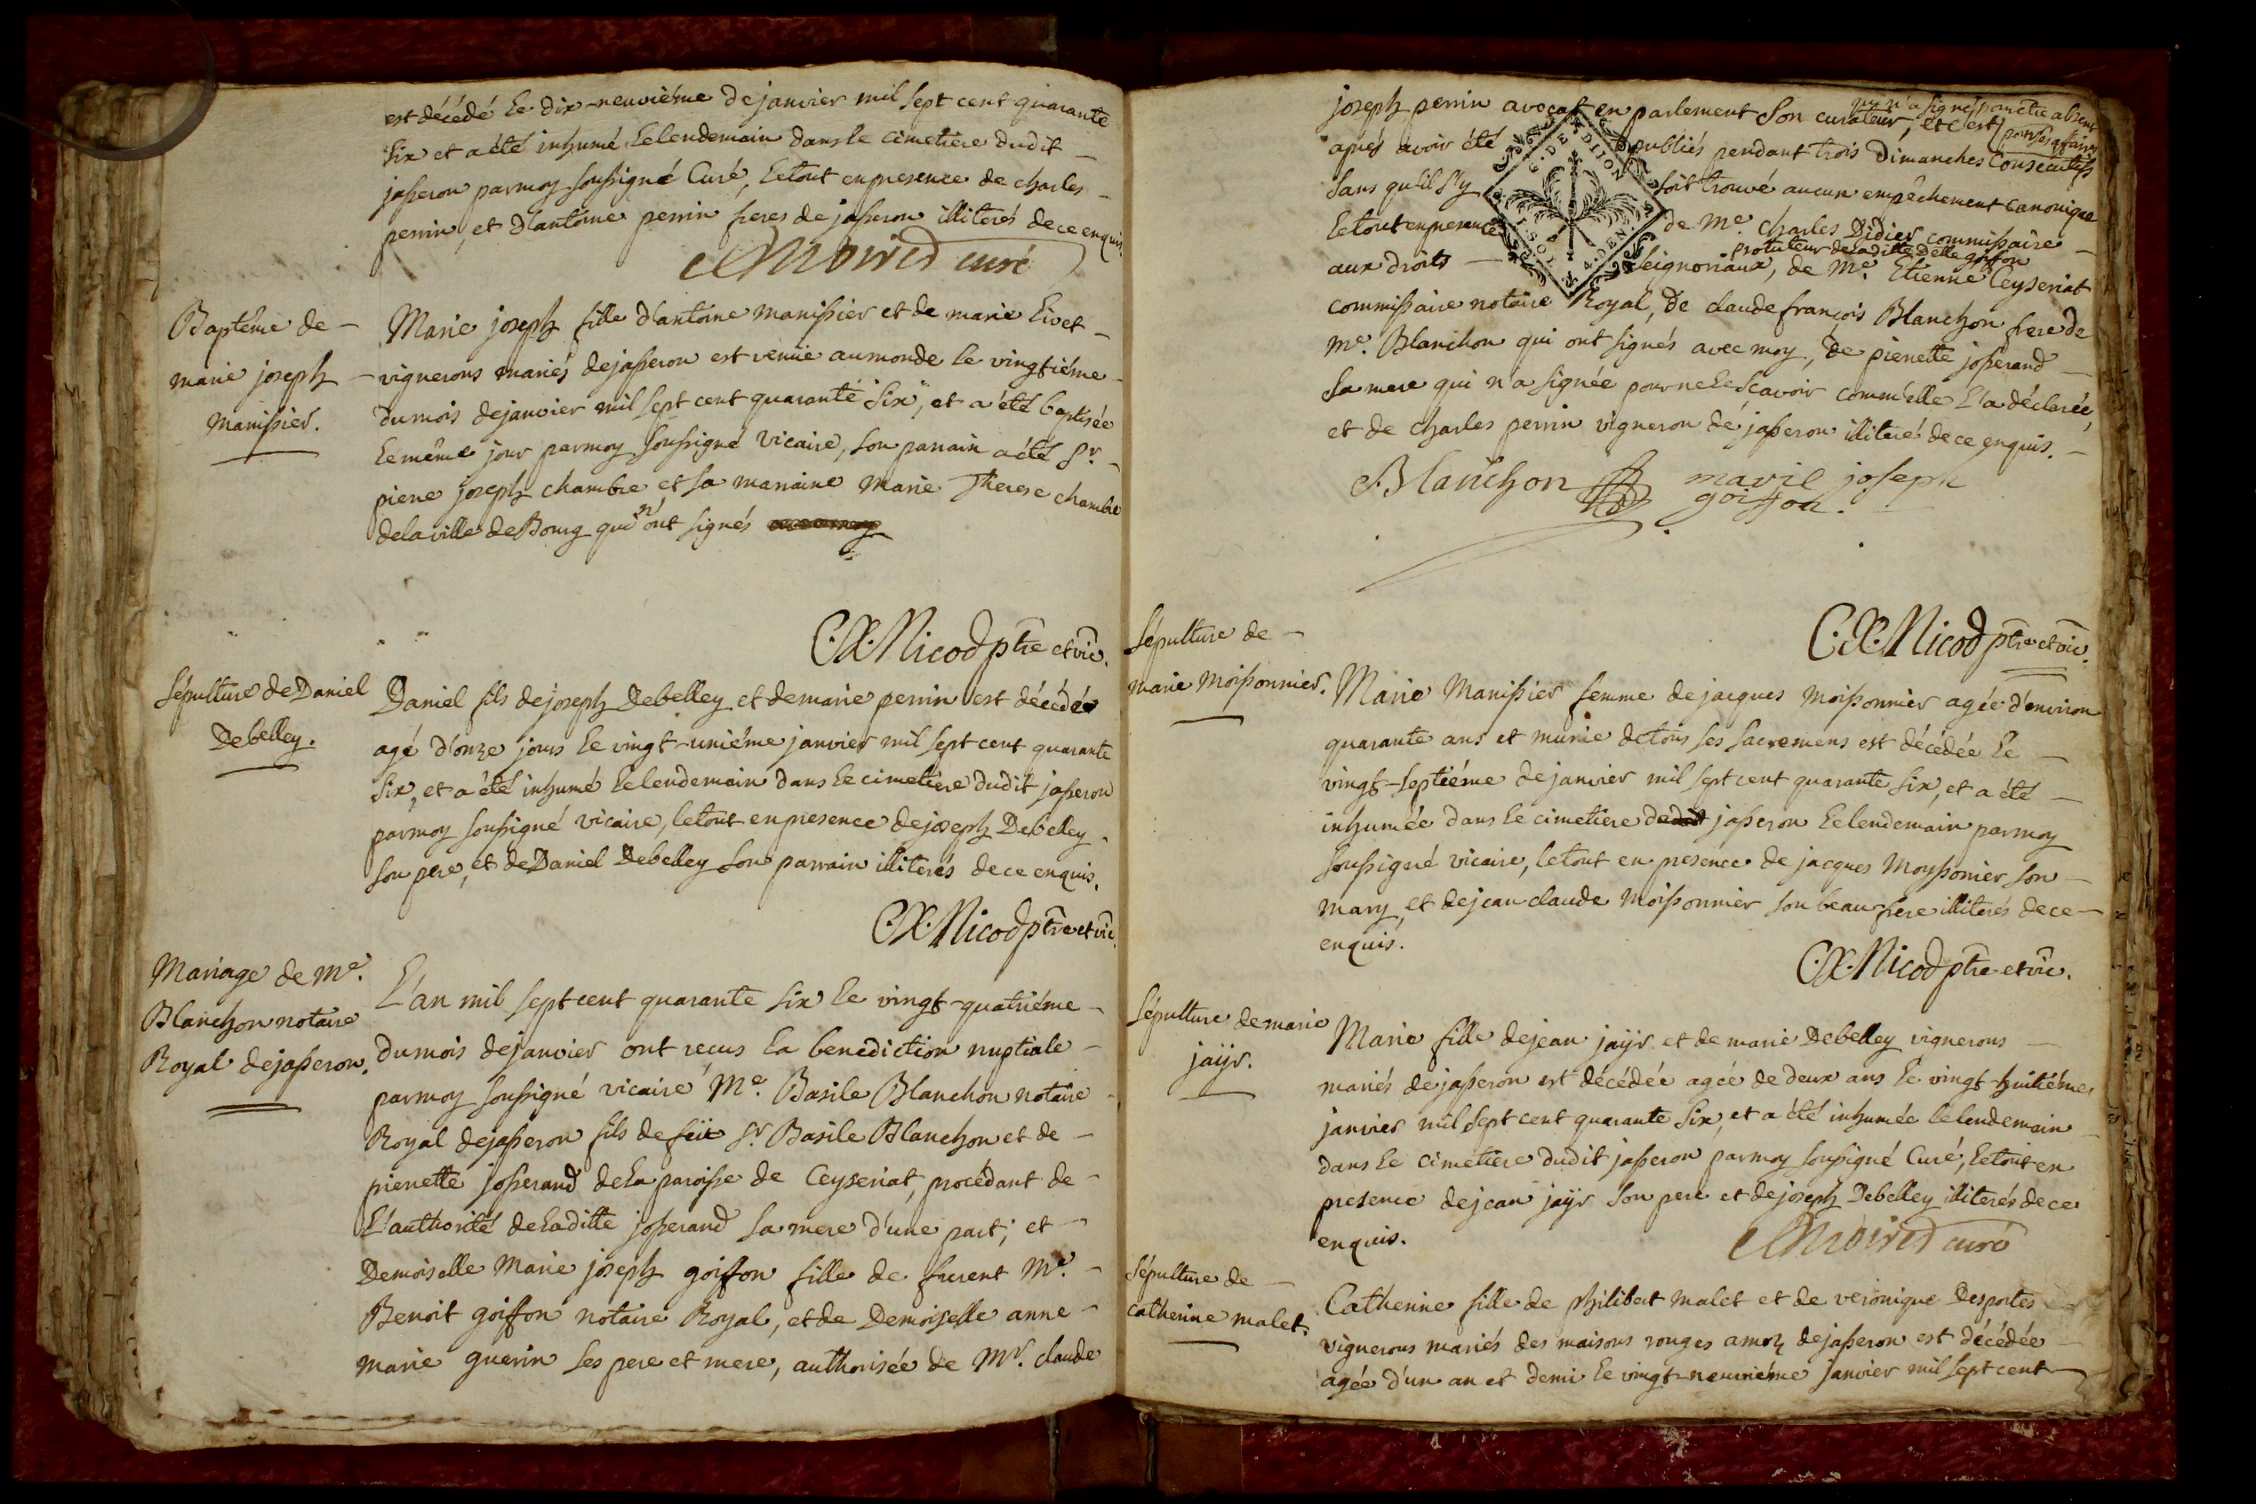 est décédé le dix-neuviéme de janvier mil sept cent quarante
six et a été inhumé le lendemain dans le cimetiere dudit –
jasseron par moy soussigné Curé, le tout en presence de charles –
perrin, et d'antoine perrin freres de jasseron illiterés de ce enquis.
Moiret curé
Baptême de –
marie joseph –
manissier.
Marie joseph fille d'antoine manissier et de marie Livet –
vignerons mariés de jasseron est venüe au monde le vingtiéme –
du mois de janvier mil sept cent quarante six, et a été baptisée
le même jour par moy soussigné vicaire, son parrain a été Sr. –
pierre joseph chambre et sa marraine marie Therese chambre
de la ville de Bourg qui n'ont signés
C.X. Nicod ptre et vic.
Sépulture de Daniel
Debelley.
Daniel fils de joseph Debelley et de marie perrin est décédé
agé d'onze jours le vingt-uniéme janvier mil sept cent quarante
six, et a été inhumé le lendemain dans le cimetiere dudit jasseron
par moy soussigné vicaire, le tout en presence de joseph Debelley –
son pere, et de Daniel Debelley son parrain illiterés de ce enquis.
C.X. Nicod ptre et vic.
Mariage de Me.
Blanchon notaire
Royal de jasseron.
L'an mil sept cent quarante six le vingt-quatriéme –
du mois de janvier ont recus la benediction nuptiale –
par moy soussigné vicaire Me. Basile Blanchon notaire –
Royal de jasseron fils de feü Sr. Basile Blanchon et de –
pierrette josserand de la paroisse de Ceyseriat, procédant de –
L'authorité de la ditte josserand sa mere d'une part; et –
Demoiselle Marie joseph goiffon fille de furent Me. –
Benoit goiffon notaire Royal, et de Demoiselle anne –
marie guerin ses pere et mere, authorisée de Mr. claude
joseph perrin avocat en parlement son curateur, qui n'a signé pour être absent
pour ses affaires
et c'est
aprés avoir été publiés pendant trois Dimanches Consecutifs
sans qu'il s'y soit trouvé aucun empêchement canonique
le tout en presence de Me. Charles Didier commissaire –
protuteur de la ditte delle goiffon
aux droits – seignoriaux, de Me. Etienne Ceyseriat
commissaire notaire Royal, de claude françois Blanchon frere de
Me. Blanchon qui ont signés avec moy, de pierrette josserand –
sa mere qui n'a signée pour ne le scavoir comm'elle l'a déclarée,
et de charles perrin vigneron de jasseron illiteré de ce enquis. –
G. DE DIJON
1. SOL. 4. DEN.
Blanchon
marie joseph
goiffon.
C.X. Nicod ptre et vic.
Sépulture de –
marie Moissonnier.
Marie Manissier femme de jacques moissonnier agée d'environ
quarante ans et munie de tous ses sacremens est décédée le –
vingt-septiéme de janvier mil sept cent quarante six, et a été –
inhumée dans le cimetiere de jasseron le lendemain par moy
soussigné vicaire, le tout en presence de jacques Moyssonier son –
mary, et de jean claude moissonnier son beau frere illiterés de ce –
enquis.
C.X. Nicod ptre et vic.
Sépulture de marie
jaÿr.
Marie fille de jean jaÿr et de marie Debelley vignerons –
mariés de jasseron est décédée agée de deux ans le vingt-huitiéme
janvier mil sept cent quarante six, et a été inhumée le lendemain –
dans le cimetiere dudit jasseron par moy soussigné Curé, le tout en
presence de jean jaÿr son pere et de joseph Debelley illiterés de ce
enquis.
Moiret curé
Sépulture de –
Catherine malet.
Catherine fille de philibert malet et de veronique Desportes
vignerons mariés des maisons rouges amoz de jasseron est décédée
agée d'un an et demi le vingt-neuviéme janvier mil sept cent